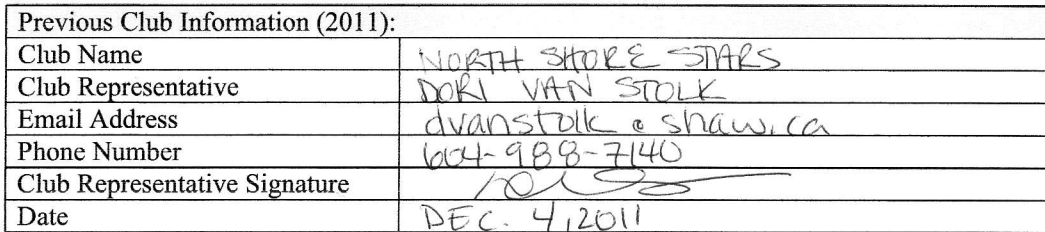 Previous Club Information (2011):
Club Name NORTH SHORE STARS
Club Representative DORI VAN STOLK
Email Address dvanstolk @ shaw.ca
Phone Number 604-988-7140
Club Representative Signature
Date DEC. 4, 2011